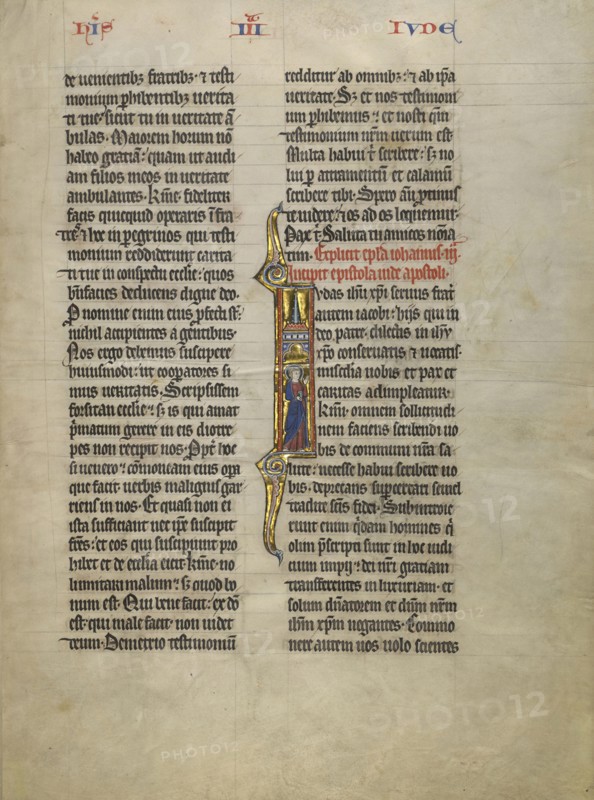 hIS III IUDE
de uenientibꝫ fratribꝫ· ⁊ testi
monium phibentibꝫ uerita
ti tue· sicut tu in ueritate ā
bulas· Maiorem horum nō
habeo gratiā· quam ut audi
am filios meos in ueritate
ambulantes· Kme· fideliter
facis quicquid operaris ī fra
tres ⁊ hoc in pegrinos qui testi
monium reddiderunt carita
ti tue in conspectu ecclie· quos
bn̄facies deducens digne deo·
P nomine enim eius pfecti st·
nichil accipientes a gentibus·
Nos ergo debemus suscipere
huiusmodi· ut cooperatores si
mus ueritatis· Scripsissem
forsitan ecclie ⁊ sꝫ is qui amat
pmatum gerere in eis diotre
pes non recipit nos· Ppt hoc
si uenero ⁊ cōmoneam eius opa
que facit uerbis malignis gar
riens in nos· Et quasi non ei
ista sufficiant nec ipe suscipit
frēs· et eos qui suscipiunt pro
hibet et de ecclia eicit· Kme· no
li imitari malum ⁊ sꝫ quod bo
num est· Qui bene facit· ex dō
est· qui male facit· non uidet
deum· Demetrio testimoniū
redditur ab omnibꝫ· ⁊ ab ipa
ueritate· Sꝫ et nos testimoni
um phibemus ⁊ et nosti qm̄
testimonium nrm uerum est·
Multa habui t scribere· sꝫ no
lui p atramentū et calamū
scribere tibi· Spero aū ptinus
te uidere ⁊ os ad os loquemur·
Pax t· Saluta tu amicos noīa
tim· Explicit epla iohannis· iii·
Incipit epistola iude apostoli·
Iudas ihu xpi seruus frat
autem iacobi· hijs qui in
deo patre dilectis in ihu
xpo conseruatis ⁊ uocatis·
misedia uobis et pax et
caritas adimpleatur·
Kmi· omnem sollicitudi
nem faciens scribendi uo
bis de communi nra sa
lute· necesse habui scribere uo
bis· deprecans supcertari semel
tradite scīs fidei· Subintroie
runt enim qdam homines q
olim pscripti sunt in hoc iudi
cium impij ⁊ dei nri gratiam
transferentes in luxuriam· et
solum dnatorem et dnm nrm
ihm xpm negantes· Commo
nere autem uos uolo scientes
PHOTO12